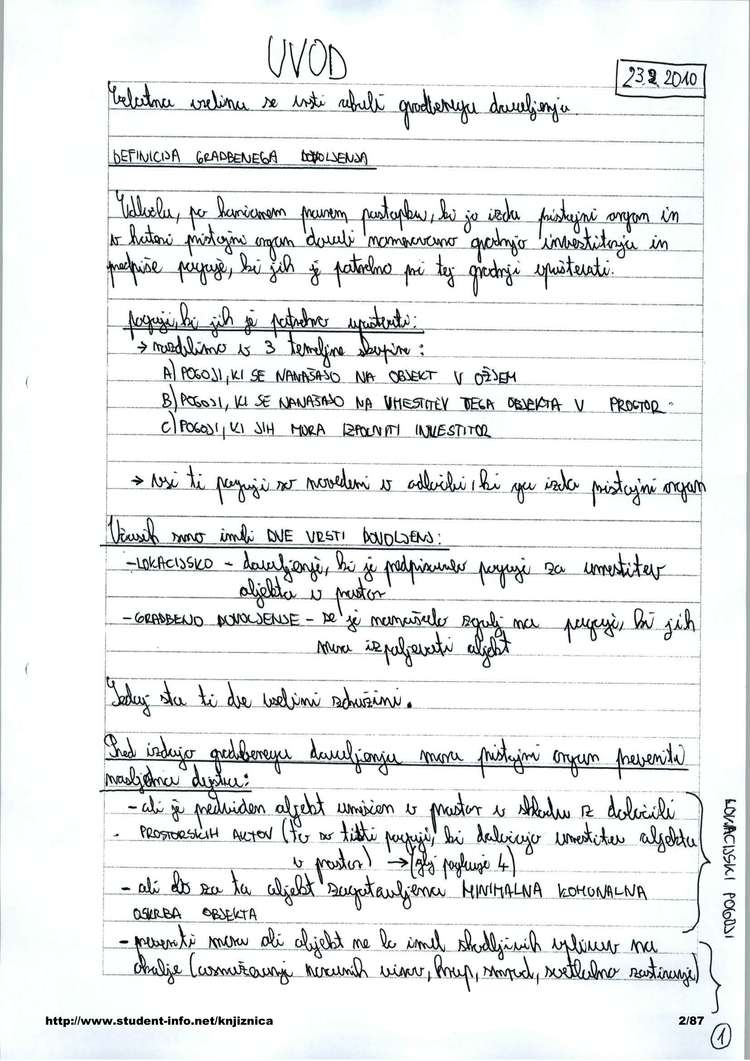 UVOD
23.2.2010
Celotna vsebina se vrti okoli gradbenega dovoljenja.
DEFINICIJA GRADBENEGA DOVOLJENJA
Odločba, po končanem pravnem postopku, ki jo izda pristojni organ in
v kateri pristojni organ dovoli nameravano gradnjo investitorju in
predpiše pogoje, ki jih je potrebno pri tej gradnji upoštevati.
pogoji, ki jih je potrebno upoštevati:
→ razdelimo v 3 temeljne skupine:
A) POGOJI, KI SE NANAŠAJO NA OBJEKT V OŽJEM
B) POGOJI, KI SE NANAŠAJO NA UMESTITEV TEGA OBJEKTA V PROSTOR
C) POGOJI, KI JIH MORA IZPOLNITI INVESTITOR
→ vsi ti pogoji so navedeni v odločbi, ki ga izda pristojni organ
Včasih smo imeli DVE VRSTI DOVOLJENJ:
- LOKACIJSKO - dovoljenje, ki je predpisovalo pogoje za umestitev
objekta v prostor
- GRADBENO DOVOLJENJE - se je nanašalo zgolj na pogoje, ki jih
mora izpoljevati objekt
Sedaj sta ti dve vsebini združini.
Pred izdajo gradbenega dovoljenja mora pristojni organ preveriti
naslednja dejstva:
- ali je predviden objekt umiščen v prostor v skladu iz določili
PROSTORSKIH AKTOV (to so tisti pogoji, ki določajo umestitev objekta
v prostor) → (glej poglavje 4)
- ali bo za ta objekt zagotavljena MINIMALNA KOMUNALNA
OSKRBA OBJEKTA
- preveriti mora ali objekt ne bo imel škodljivih vplivov na
okolje (onesnaževanje, hrup, smrad, svetlobno zastiranje)
LOKACIJSKI POGOJI
http://www.student-info.net/knjiznica
2/87
1